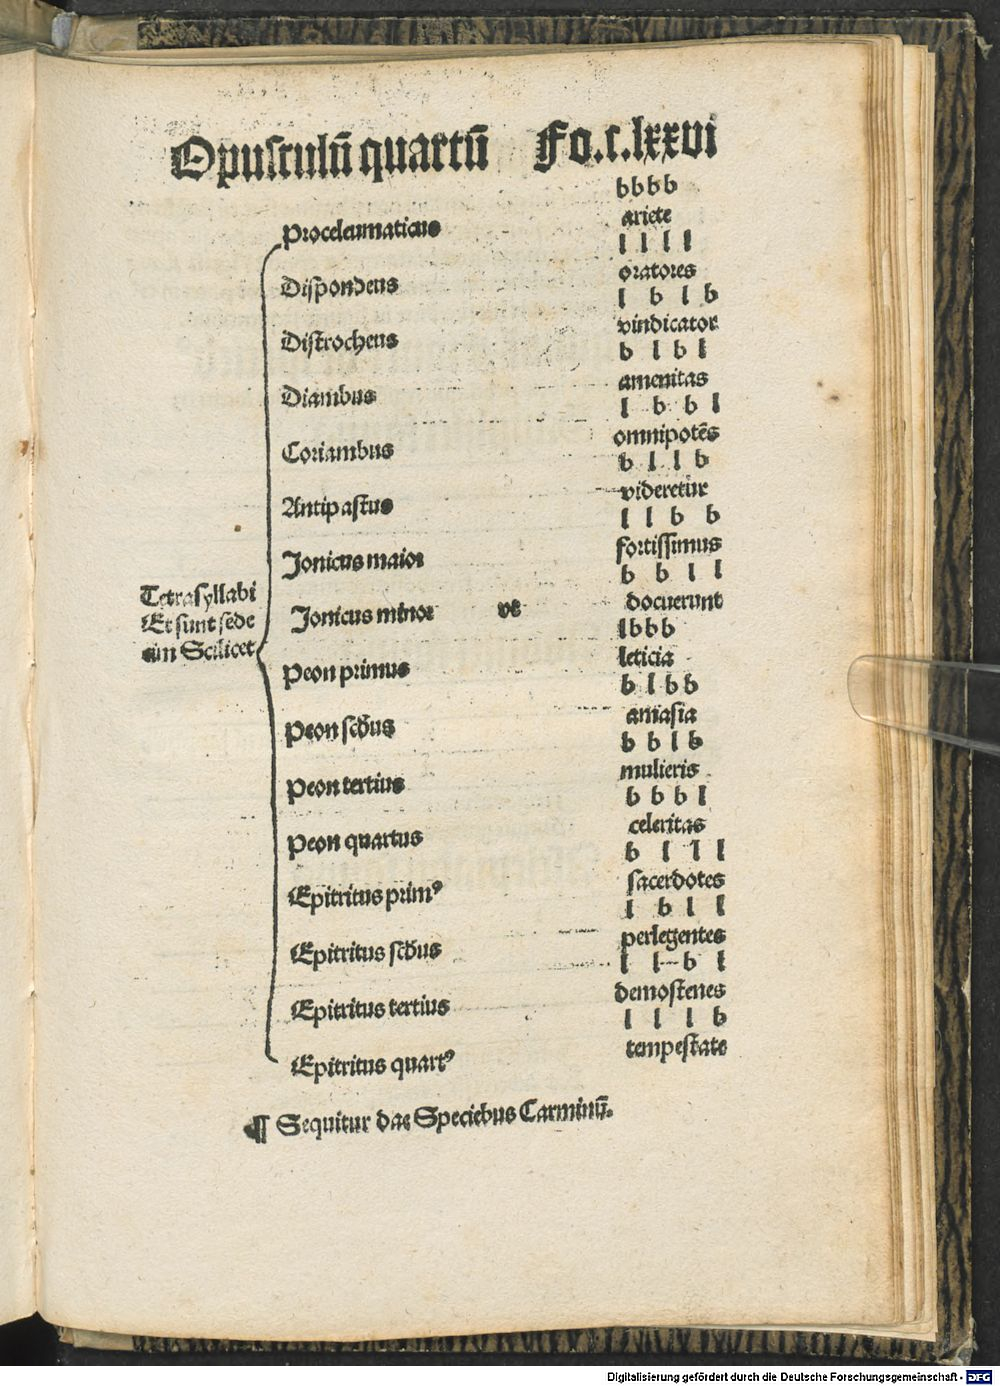 Opusculū quartū Fo.c.lxxvi
b b b b
Proceleumaticus ariete
l l l l
Dispondeus oratores
l b l b
Distrocheus vindicator
b l b l
Diambus amenitas
l b b l
Coriambus omnipotēs
b l l b
Antipastus videretur
l l b b
Jonicus maior fortissimus
b b l l
Jonicus minor vt docuerunt
l b b b
Peon primus leticia
b l b b
Peon scd̄us amasia
b b l b
Peon tertius mulieris
b b b l
Peon quartus celeritas
b l l l
Epitritus primꝰ sacerdotes
l b l l
Epitritus scd̄us perlegentes
l l b l
Epitritus tertius demostenes
l l l b
Epitritus quartꝰ tempestate
Tetrasyllabi
Et sunt sede
cim Scilicet
¶ Sequitur dae Speciebus Carminū.
Digitalisierung gefördert durch die Deutsche Forschungsgemeinschaft - DFG